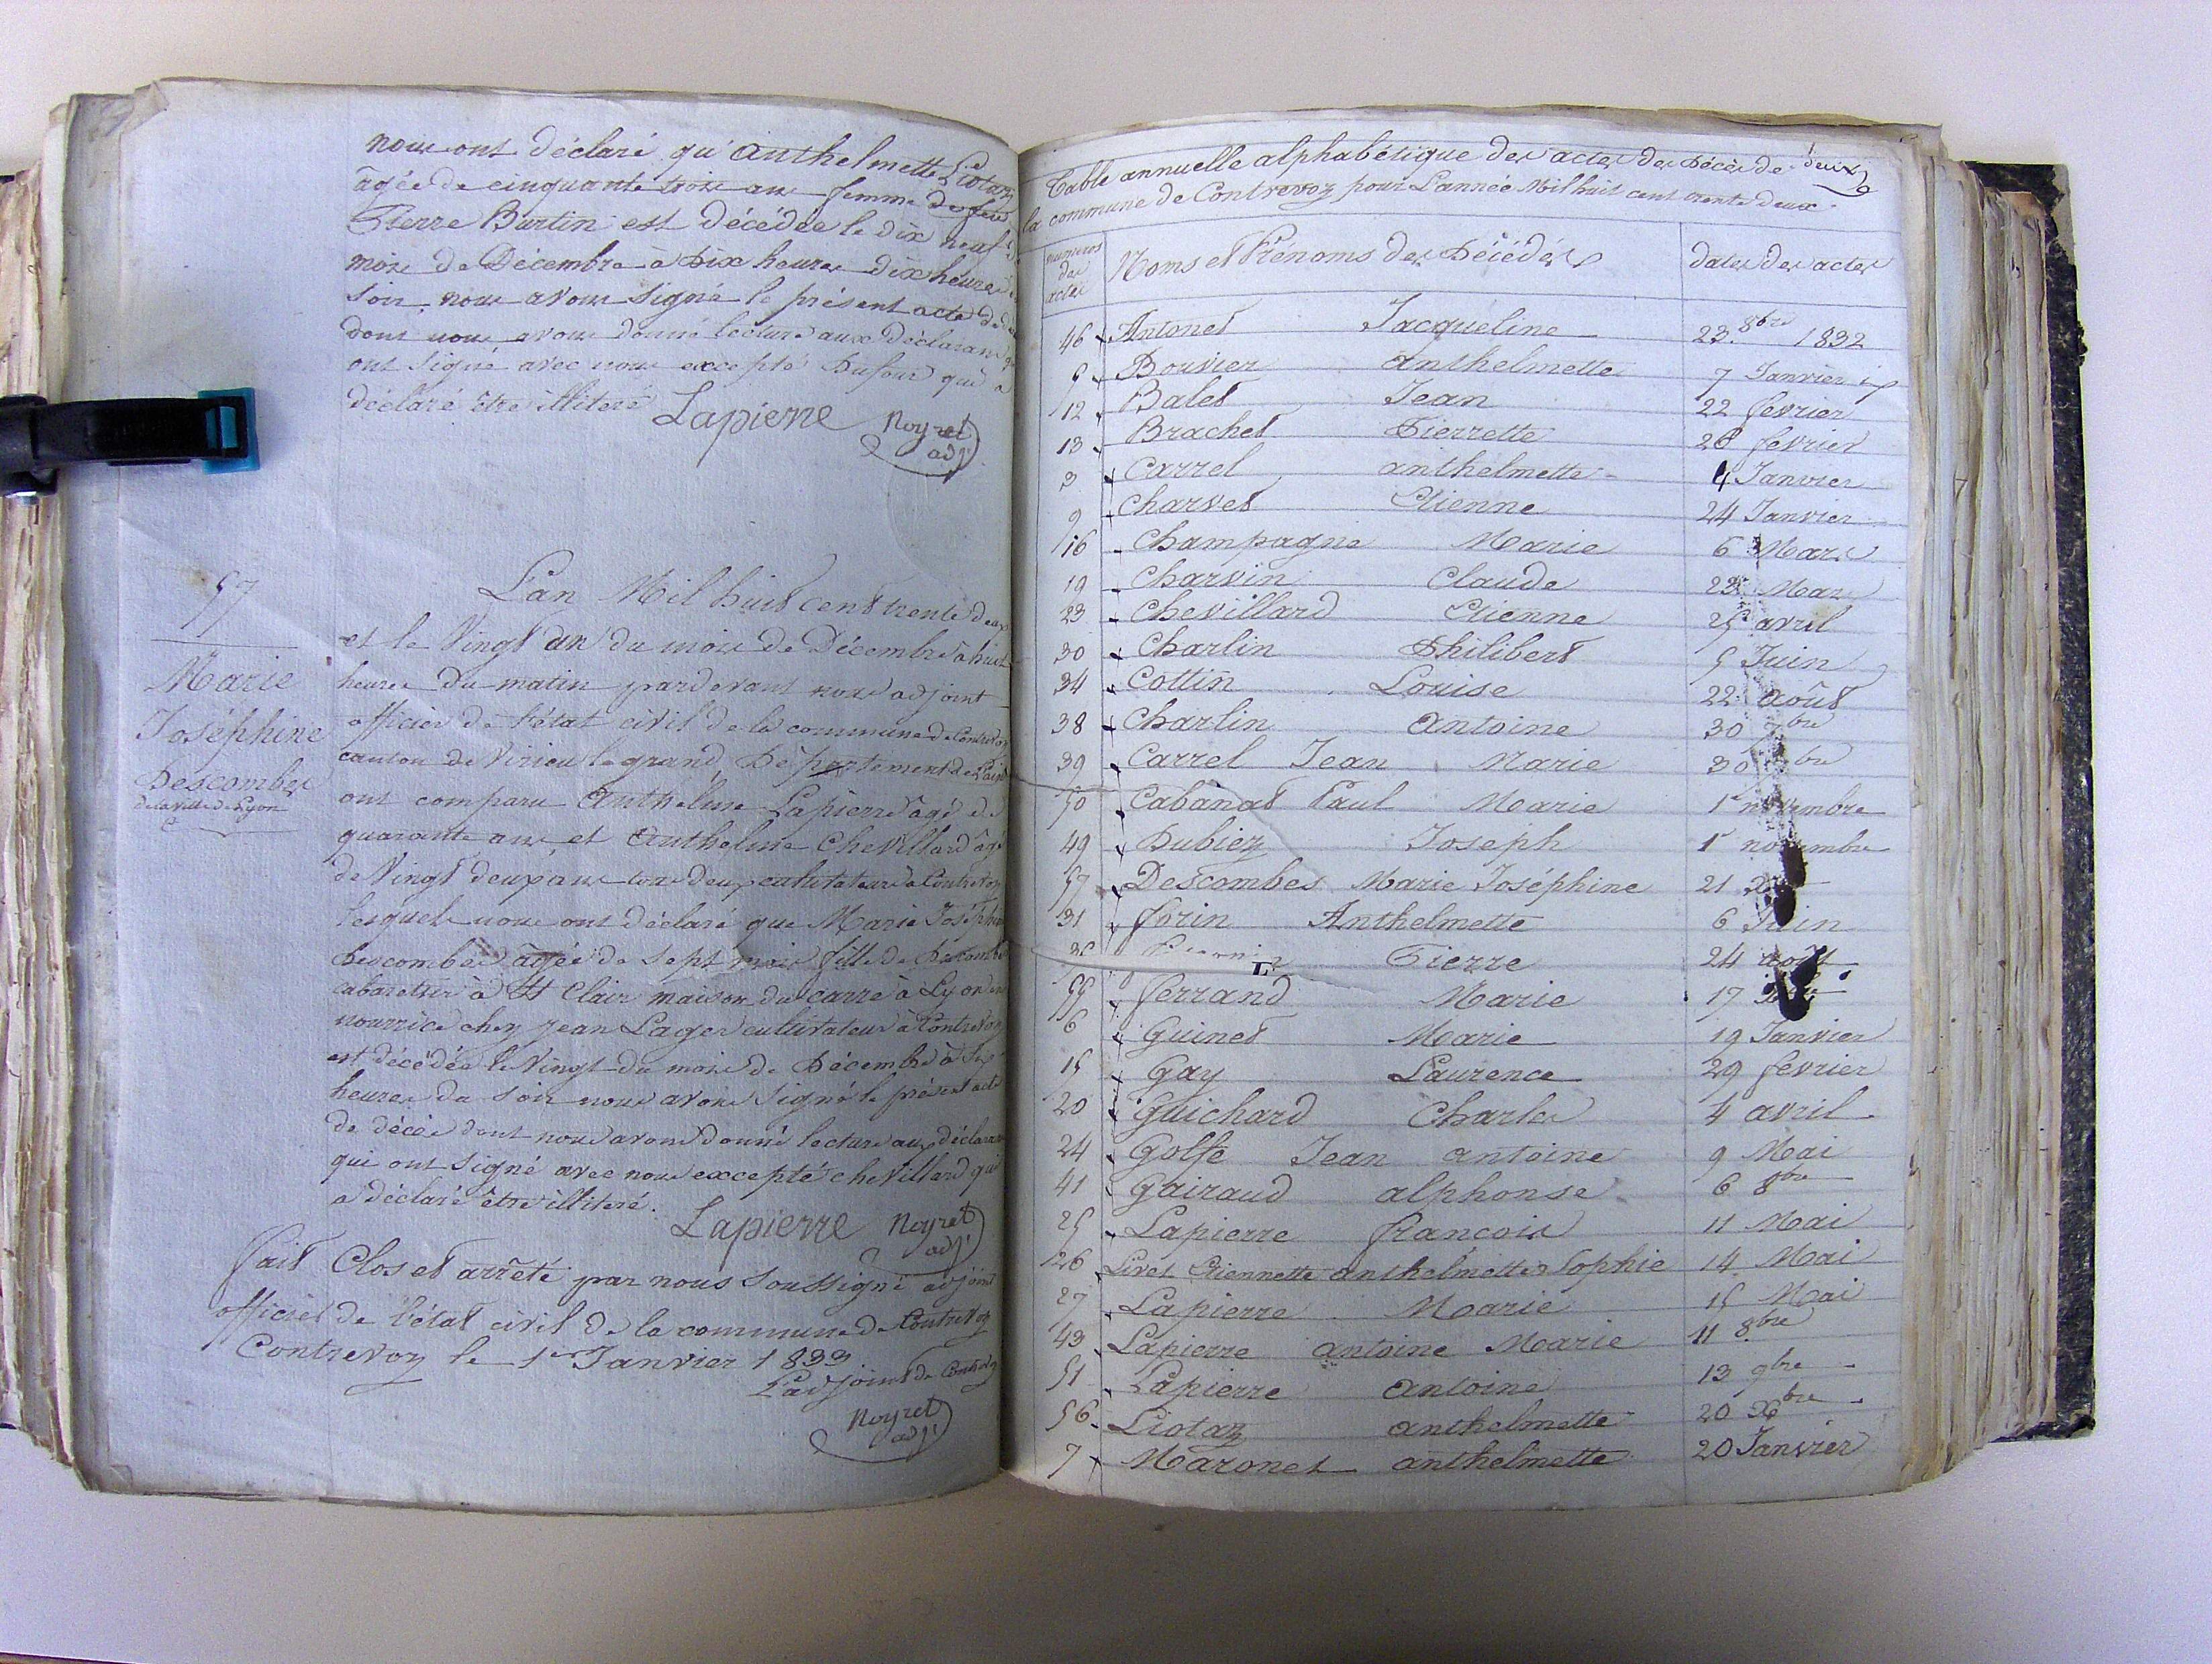 nous ont déclaré qu'anthelmette Liotaz
âgée de cinquante trois ans femme de feu
Pierre Burtin est décédée le dix neuf
mois de Décembre à Dix heures dix heures
soir, nous avons signé le présent acte de
dont nous avons donné lecture aux Déclarans
ont signé avec nous excepté Dufour qui a
déclaré être illiteré
Lapierre Noyret
adj.t
57
Marie
Joséphine
Descombes
de la ville de Lyon
L'an Mil huit cent trente deux
et le Vingt un du mois de Décembre à huit
heures du matin pardevant nous adjoint
officier de l'état civil de la commune de Contrevoz
canton de Virieu le grand Département de l'ain
ont comparu Anthelme Lapierre âgé de
quarante ans et Anthelme Chevillard âgé
de Vingt deux ans tous deux cultivateurs à Contrevoz
lesquels nous ont déclaré que Marie Joséphine
Descombes âgée de sept mois fille de Descombes
cabaretier à St Clair maison du carre à Lyon en
nourrice chez Jean Lager cultivateur à Contrevoz
est décédée le Vingt du mois de Décembre à six
heures du soir nous avons signé le présent acte
de décès dont nous avons donné lecture aux déclarans
qui ont signé avec nous excepté chevillard qui
a déclaré être illiteré.
Lapierre Noyret
adj.t
fait Clos et arrêté par nous soussigné adjoint
officier de l'état civil de la commune de Contrevoz
Contrevoz le 1er Janvier 1833
L'adjoint de Contrevoz
Noyret
adj.t
Table annuelle alphabétique des actes des Décès de
la commune de Contrevoz pour L'année Mil huit cent trente deux
numéros des actes Noms et Prénoms des Décédés dates des actes
46 Antonet Jacqueline 23 8bre 1832
5 Bouvier Anthelmette 7 Janvier
12 Balet Jean 22 février
13 Brachet Pierrette 26 février
3 Carrel anthelmette 4 Janvier
9 Charvet Etienne 24 Janvier
16 Champagne Marie 6 Mars
19 Charvin Claude 23 Mars
23 Chevillard Etienne 25 avril
30 Charlin Philibert 5 Juin
34 Cottin Louise 22 août
38 Charlin Antoine 30 7bre
39 Carrel Jean Marie 30 7bre
50 Cabanat Paul Marie 1er novembre
49 Dubiez Joseph 1er novembre
57 Descombes Marie Joséphine 21
31 forin Anthelmette 6 Juin
Pierre 24 août
55 ferrand Marie 17
6 Guinet Marie 19 Janvier
15 Gay Laurence 29 février
20 Guichard Charles 4 avril
24 Golfe Jean antoine 9 Mai
41 Gairaud alphonse 6 8bre
25 Lapierre francois 11 Mai
26 Livet Etiennette anthelmette Sophie 14 Mai
27 Lapierre Marie 15 Mai
43 Lapierre antoine Marie 11 8bre
51 Lapierre antoine 13 9bre
56 Liotaz anthelmette 20 Xbre
7 Maronet anthelmette 20 Janvier